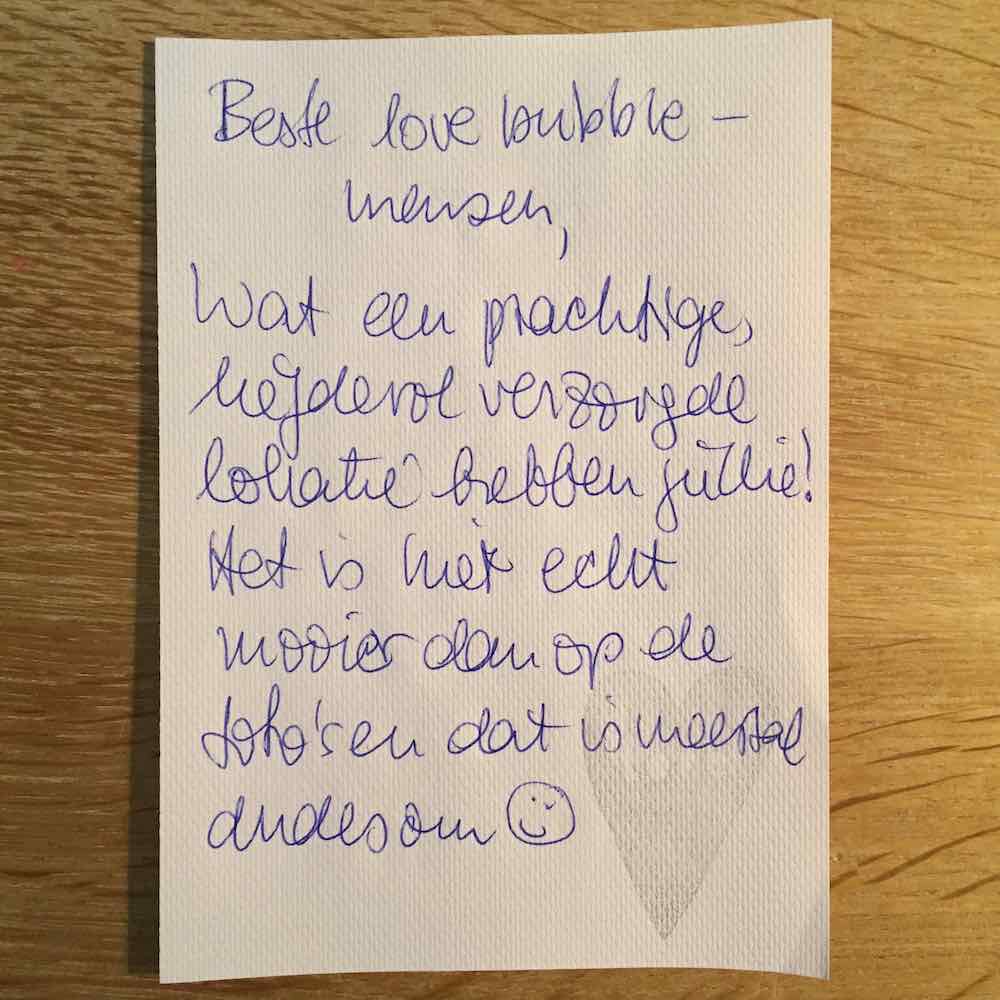 Beste love bubble -
mensen,
Wat een prachtige,
liefdevol verzorgde
lokatie hebben jullie!
Het is hier echt
mooier dan op de
foto's en dat is meestal
andersom